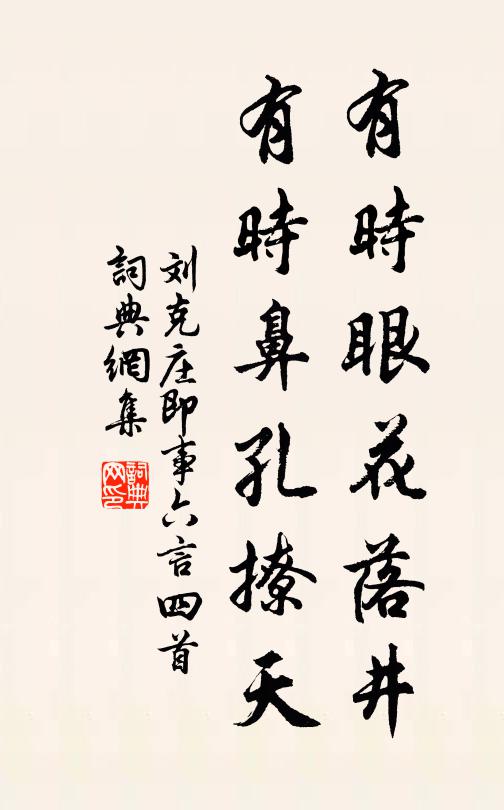 有時眼花落井
有時鼻孔撩天
刘克庄即事六言四首
詞典網集
詞典網印